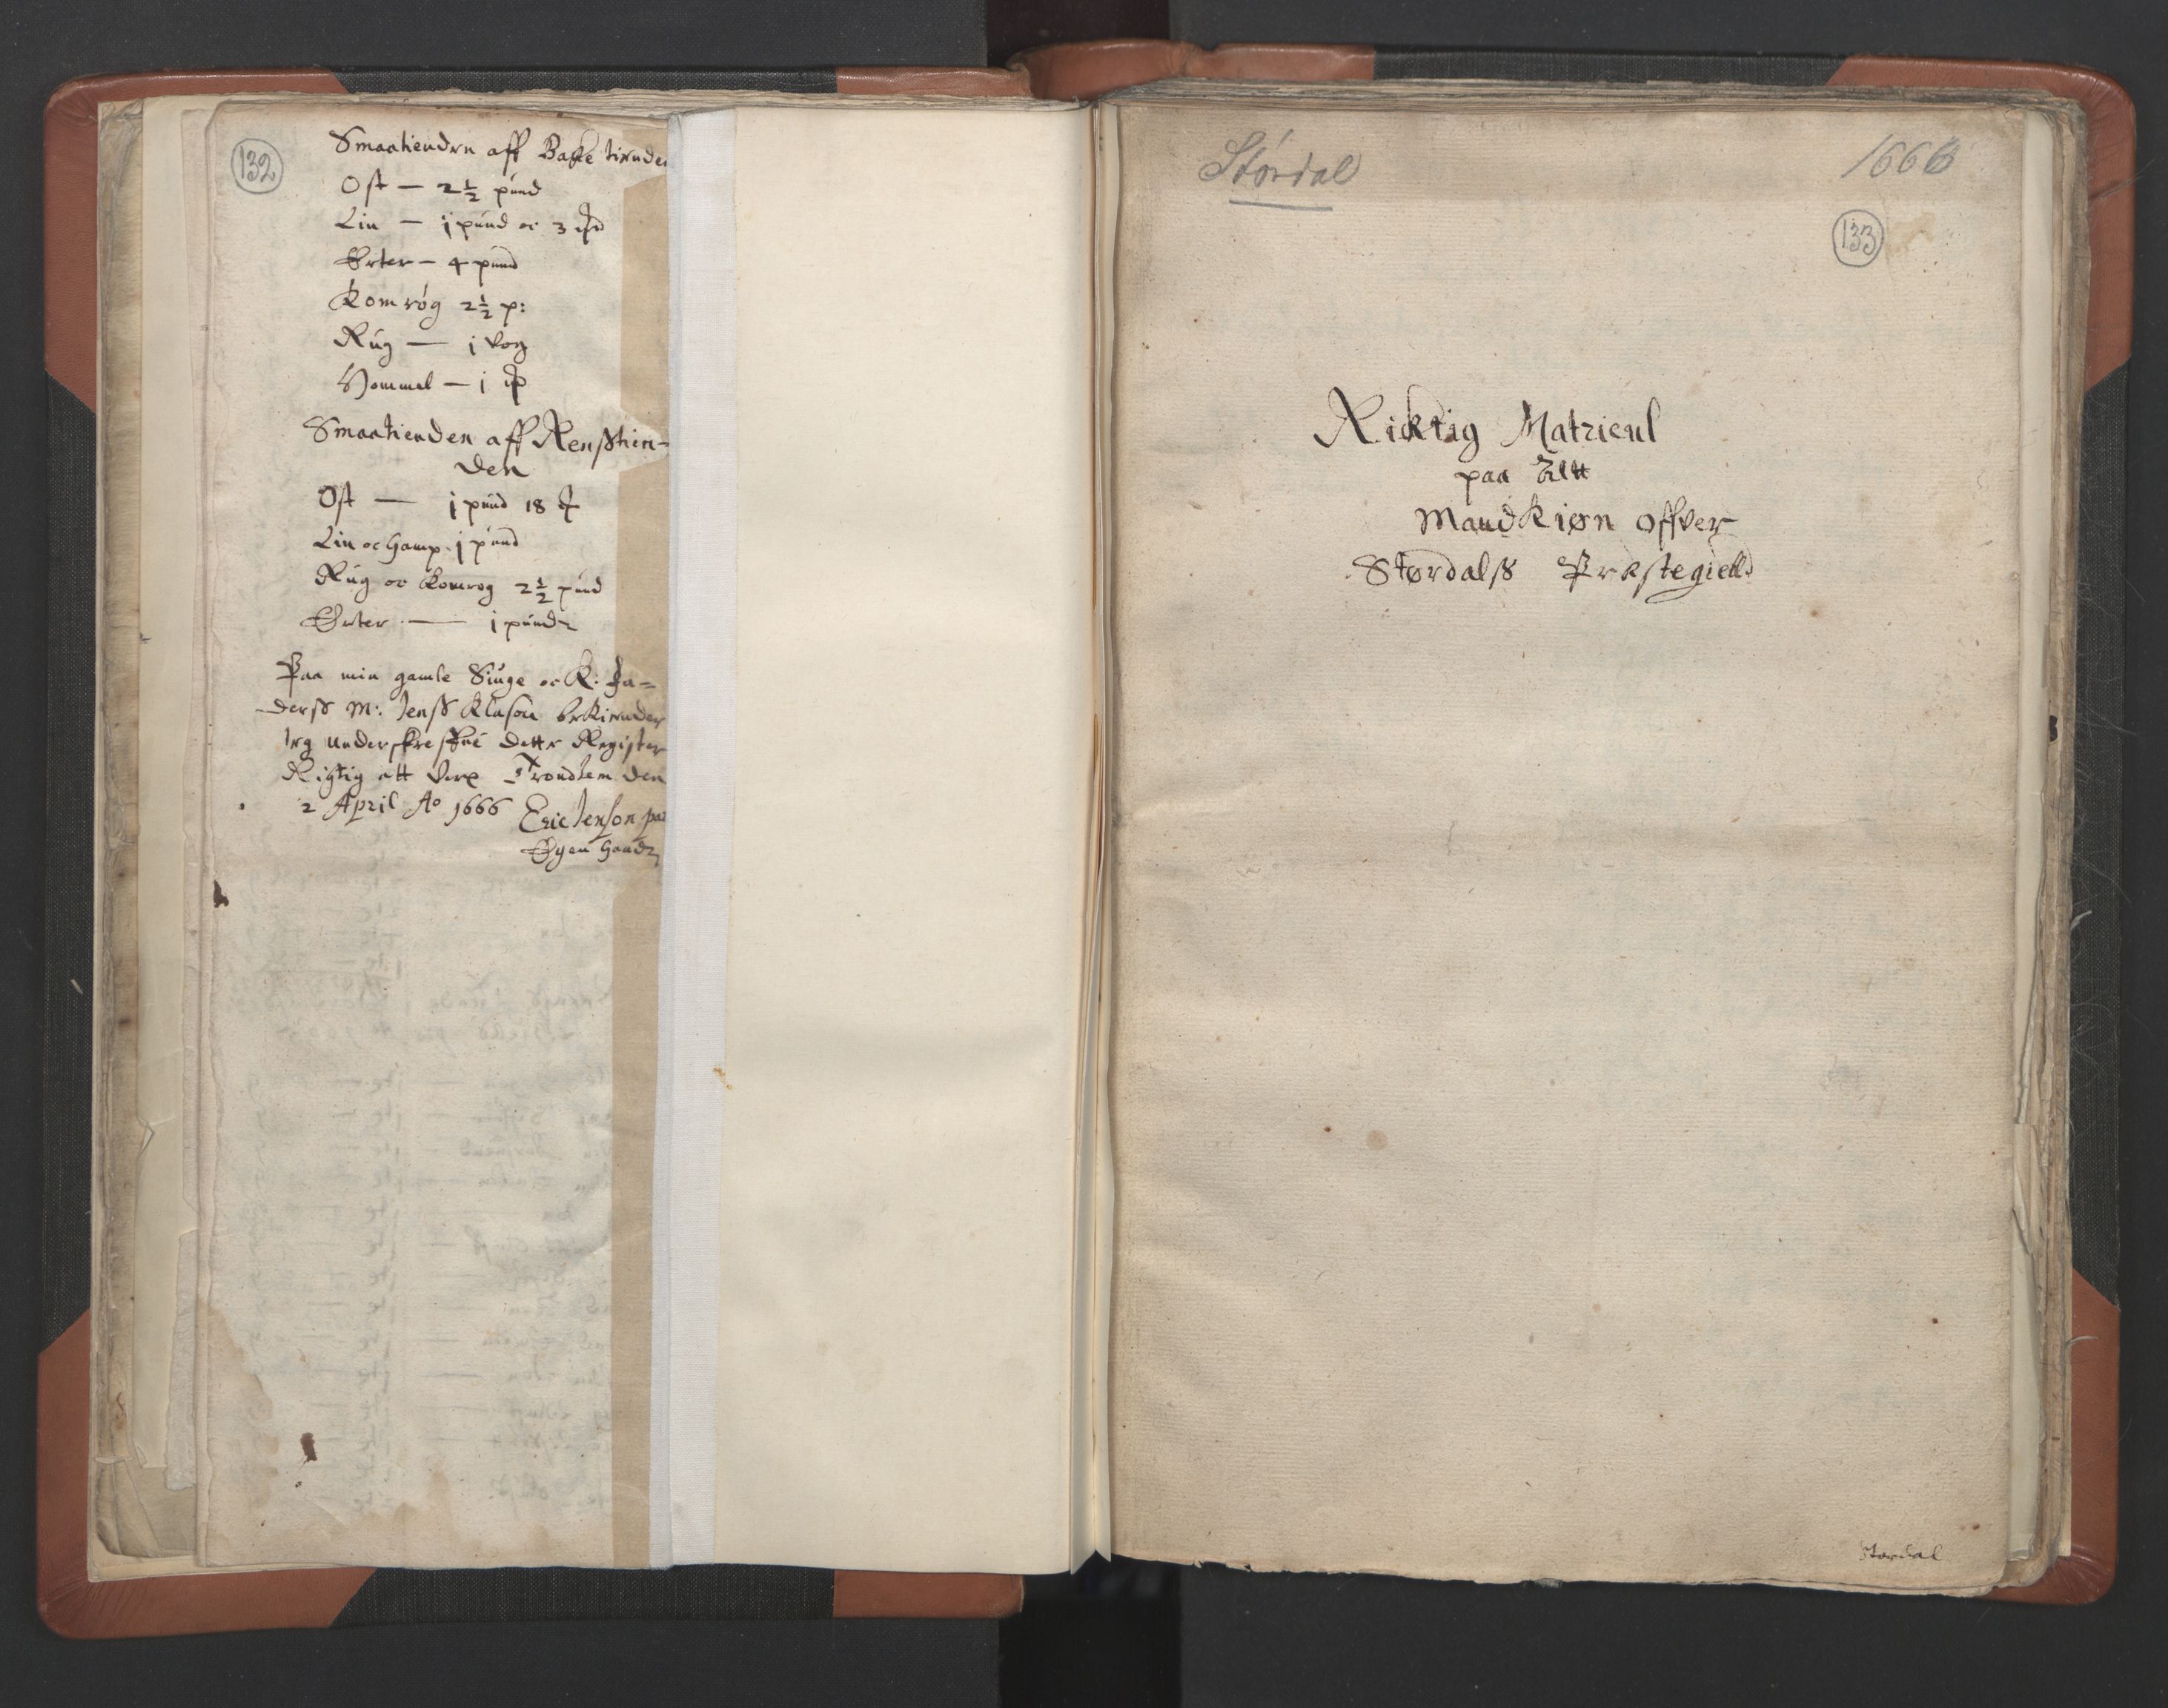 132
Smaatienden aff Bakke tiende
Ost — 2½ pund
Lin — j pund oc 3
Erter — 4 pund
Komrøg 2½ p:
Rug — j vog
Hommel — j
Smaatienden aff Rensthien-
den
Ost — j pund 18
Lin oc Hamp. j pund
Rug oc Komrog 2½ pund
Erter — j pund
Paa min gamle Siuge oc K: Fa-
derss M: Jenss Klason bekiender
Jeg underskrefne dette Register
Rigtig att vere Trondhem den
2 April Ao 1666 Eric Jenson paa
Egen Haand
Størdal
1666
133
Ricktig Matricul
paa Alt
Mandkiøn offver
Størdalss Prestegield
Størdal